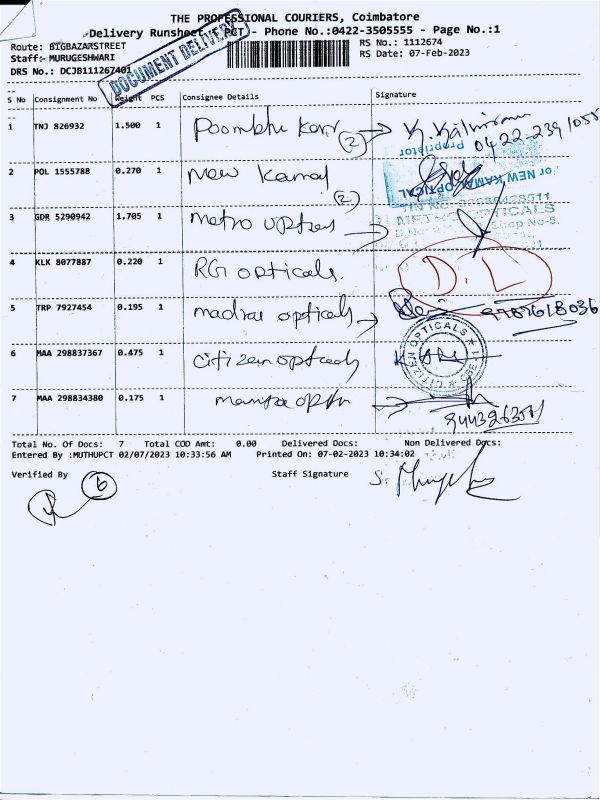 THE PROFESSIONAL COURIERS, Coimbatore
Delivery Runsheet, PCT - Phone No.:0422-3505555 - Page No.:1
DOCUMENT DELIVERY
Route: BIGBAZARSTREET
Staff:- MURUGESHWARI
DRS No.: DCJB111267401
RS No.: 1112674
RS Date: 07-Feb-2023
S No Consignment No Weight PCS Consignee Details Signature
1 TNJ 826932 1.500 1 (2) 0422-2391055
Proprietor
2 POL 1555788 0.270 1 New Kamal (2)
For NEW KAMAL OPTICAL
3 GDR 5290942 1.705 1 Metro
METRO OPTICALS
Shop No-5,
4 KLK 8077887 0.220 1 RG opticals. D.L
5 TRP 7927454 0.195 1 madras opticals
6 MAA 298837367 0.475 1 Citizen opticals
CITIZEN OPTICALS
7 MAA 298834380 0.175 1
Total No. Of Docs: 7 Total COD Amt: 0.00 Delivered Docs: Non Delivered Docs:
Entered By :MUTHUPCT 02/07/2023 10:33:56 AM Printed On: 07-02-2023 10:34:02
Verified By Staff Signature
6